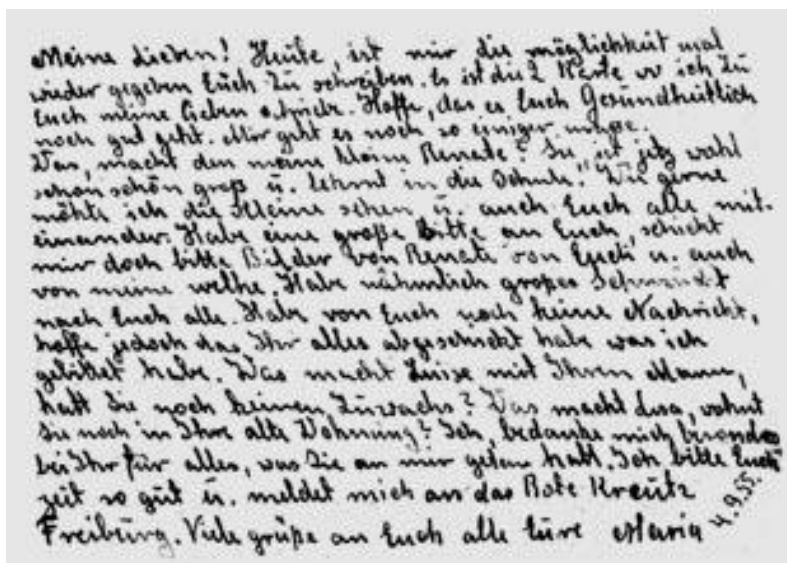 Meine Lieben! Heute, ist mir die möglichkeit mal
wieder gegeben Euch zu schreiben. Es ist die 2 Karte wo ich zu
Euch meine Lieben schicke. Hoffe, das es Euch Gesundheitlich
noch gut geht. Mir geht es noch so einiger maße.
Was, macht den meine kleine Renate? Sie, ist jetz wohl
schon schön groß u. lehrnt in die Schule. Wie gerne
möhte ich die Kleine sehen u. auch Euch alle mit-
einander. Habe eine große Bitte an Euch, schickt
mir doch bitte Bilder von Renate von Euch u. auch
von meine welhe. Habe nähmlich großes Sehnsucht
nach Euch alle. Habe von Euch noch keine Nachricht,
hoffe jedoch das Ihr alles abgeschickt habe was ich
gebittet habe. Was macht Luise mit Ihren Mann,
hatt Sie noch keinen Zuwachs? Was macht Lisa, wohnt
Sie noch in Ihre alte Wohnung? Ich, bedanke mich besonders
bei Ihr für alles, was Sie an mir getan hatt. Ich bitte Euch
zeit so gut u. meldet mich an das Rote Kreutz
Freiburg. Viele grüße an Euch alle Eure Maria 4.9.55.